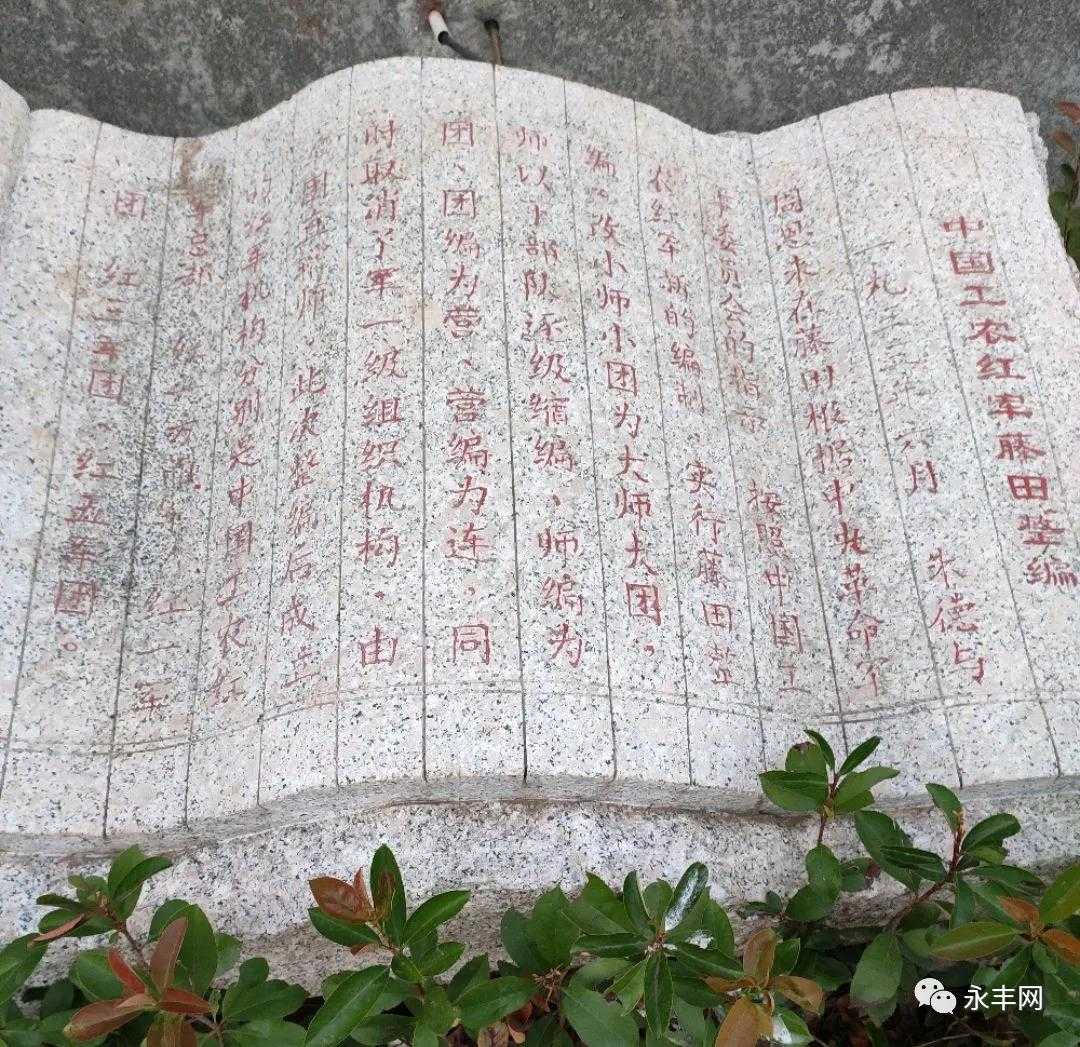 中国工农红军藤田整编
一九三三年六月 朱德与
周恩来在藤田根据中央革命军
事委员会的指示 按照中国工
农红军新的编制 实行藤田整
编。改小师小团为大师大团。
师以下部队逐级缩编、师编为
团、团编为营、营编为连,同
时取消了军一级组织机构,由
团直辖师,此次整编后成立
的军机构分别是中国工农红
军总部 红一方面军、红一军
团 红三军团 红五军团。
永丰网